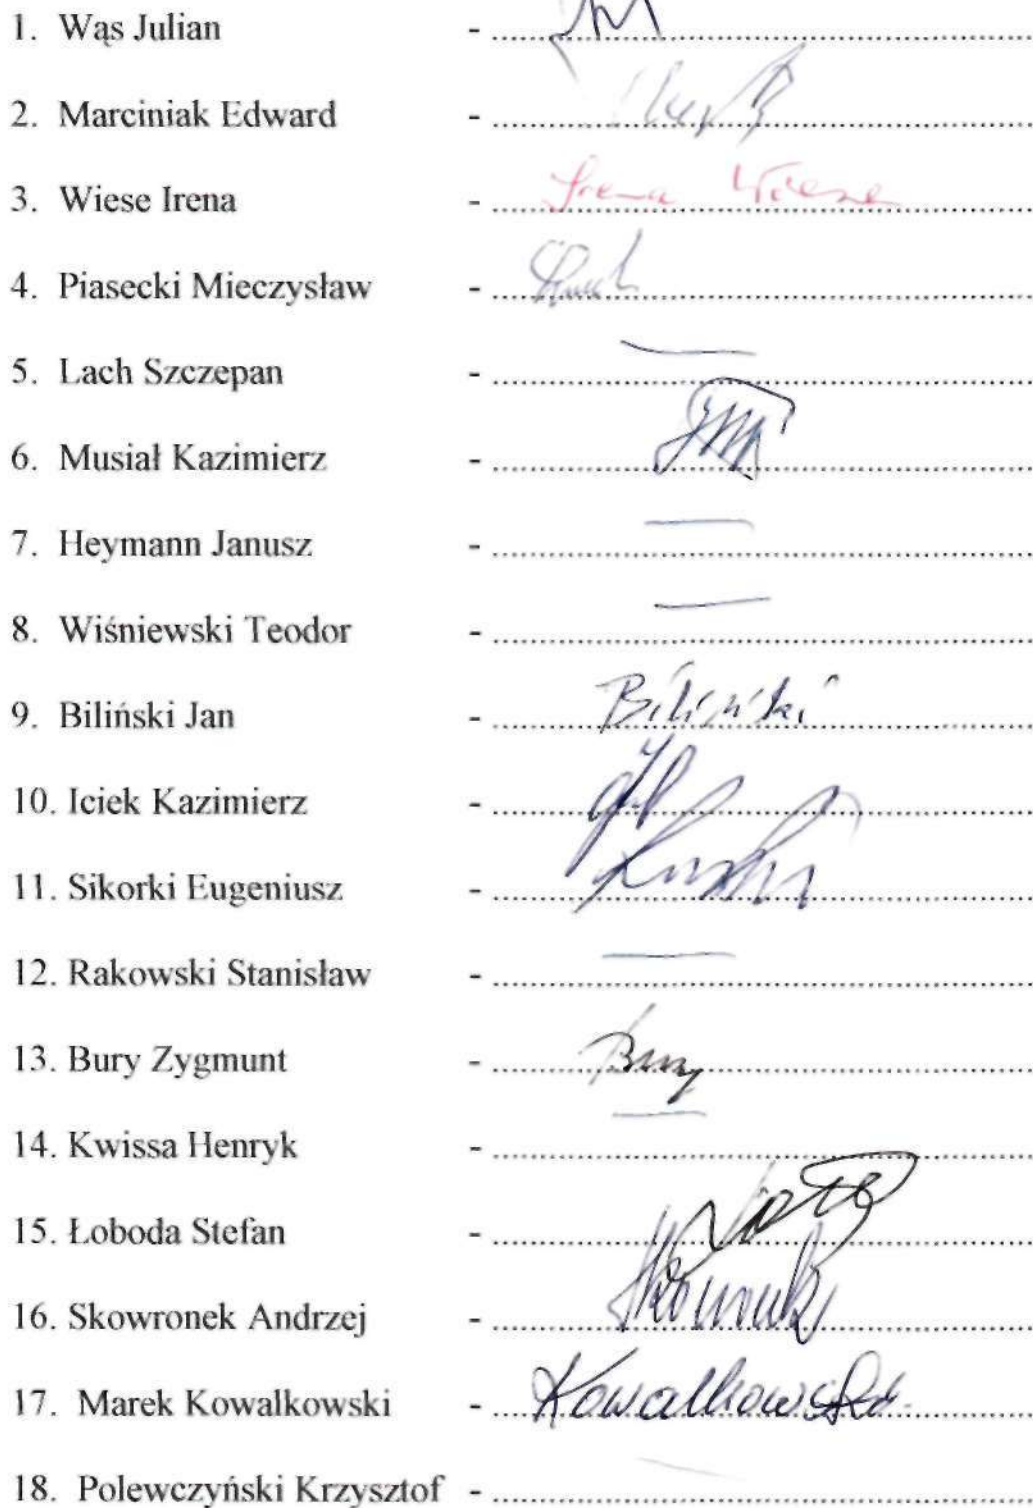 1. Wąs Julian - ........................................
2. Marciniak Edward - ........................................
3. Wiese Irena - ........ Irena Wiese ........
4. Piasecki Mieczysław - ........................................
5. Lach Szczepan - ........................................
6. Musiał Kazimierz - ........................................
7. Heymann Janusz - ........................................
8. Wiśniewski Teodor - ........................................
9. Biliński Jan - ........ Biliński ........
10. Iciek Kazimierz - ........................................
11. Sikorki Eugeniusz - ........................................
12. Rakowski Stanisław - ........................................
13. Bury Zygmunt - ........ Bury ........
14. Kwissa Henryk - ........................................
15. Łoboda Stefan - ........................................
16. Skowronek Andrzej - ........................................
17. Marek Kowalkowski - ........ Kowalkowski ........
18. Polewczyński Krzysztof - ........................................